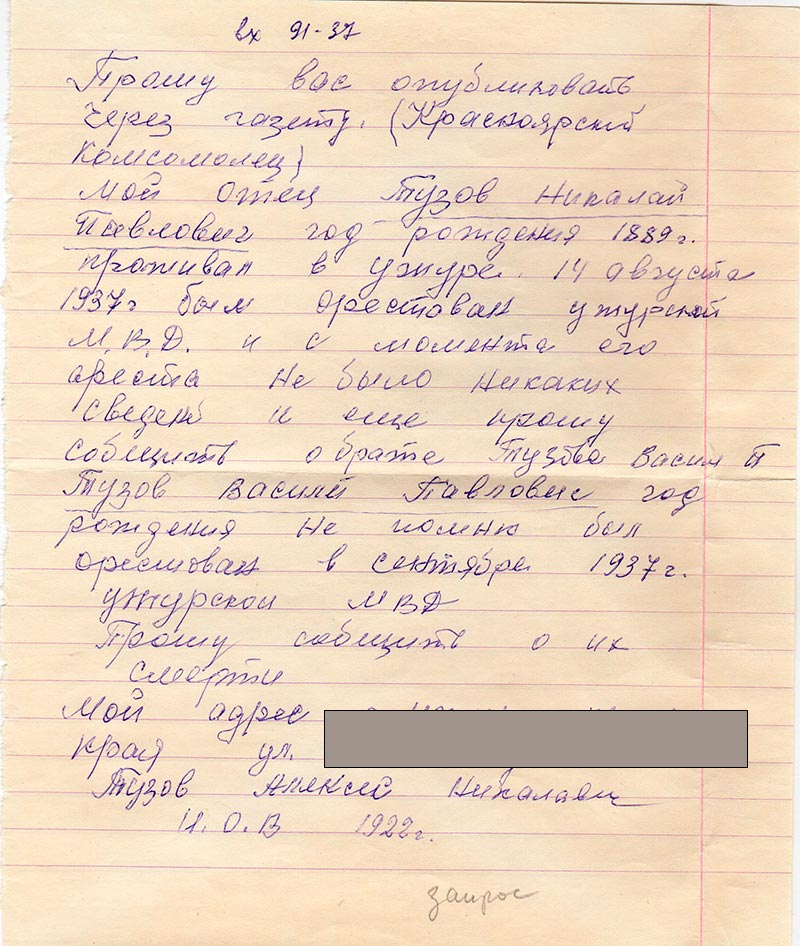 вх 91-37
Прошу вас опубликовать
через газету. (Красноярский
Комсомолец)
мой отец Тузов Николай
Павлович год рождения 1889г.
проживал в ужуре. 14 августа
1937г был орестован ужурской
М.В.Д. и с момента его
ареста не было никаких
сведений и еще прошу
сообщить о брате Тузова Васил П
Тузов Василий Павлович год
рождения не помню был
орестован в сентябре 1937г.
ужурской МВД
Прошу сообщить о их
смерти
Мой адрес
края ул.
Тузов Алексей Николаевич
И.О.В 1922г.
запрос